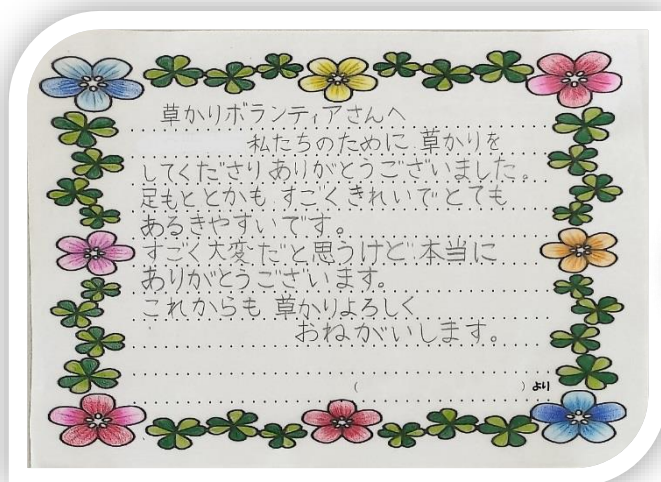 草かりボランティアさんへ
私たちのために草かりを
してくださりありがとうございました。
足もととかもすごくきれいでとても
あるきやすいです。
すごく大変だと思うけど本当に
ありがとうございます。
これからも草かりよろしく
おねがいします。
( ) より